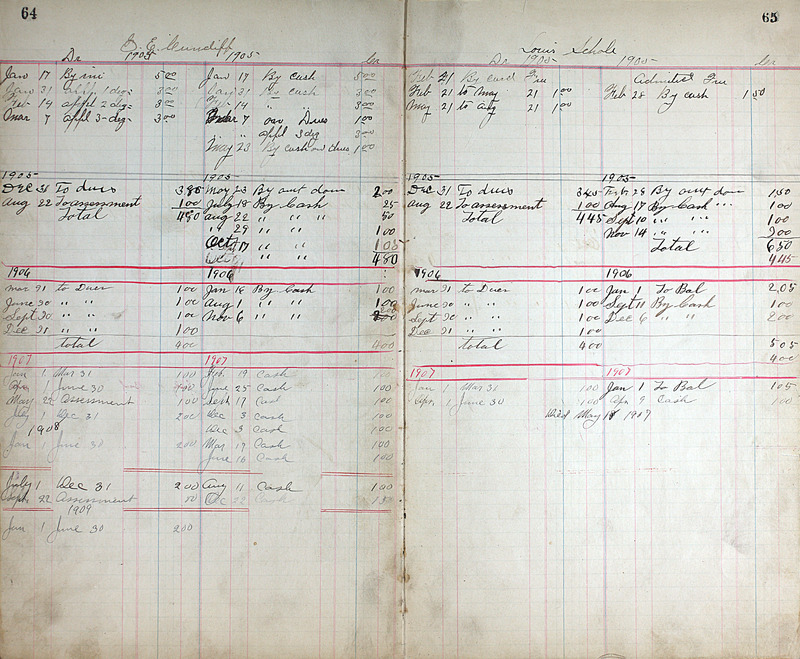 64
Dr 1905 1905 Cr
Jan 17 By ini 5 00 Jan 17 By Cash 5 00
Jan 31 appl 1 deg 3 00 Jan 31 By Cash 3 00
Feb 14 appl 2 deg 3 00 Feb 14 " " 3 00
Mar 7 appl 3 deg 3 00 Mar 7 Dues 1 00
appl 3 deg 3 00
May 23 By cash on dues 1 00
1905 1905
Dec 31 To dues May 23 By amt down 2 00
Aug 22 To assessment 1 00 July 18 By Cash 25
Total 4 80 Aug 22 " " " 50
" 29 " " 1 00
Oct 17 " " 1 05
" " 4 80
1906 1906
Mar 31 to Dues 1 00 Jan 16 By Cash 1 00
June 30 " " 1 00 Aug 1 " " 1 00
Sept 30 " " 1 00 Nov 6 " "
Dec 31 " " 1 00
Total 4 00 4 00
1907 1907
Jan 1 Mar 31 1 00 Feb 19 Cash 1 00
Apr 1 June 30 1 00 June 25 Cash 1 00
May 28 Assessment 1 00 Sept 17 Cash 1 00
July 1 Dec 31 2 00 Dec 3 Cash 1 00
1908 Dec 3 Cash 1 00
Jan 1 June 30 2 00 Mar 17 Cash 1 00
June 16 Cash 1 00
July 1 Dec 31 2 00 Aug 11 Cash 1 00
Sept 22 Assessment 50 Dec 22 Cash 1 50
1909
Jan 1 June 30 2 00
65
Louis Schole
Dr 1905 1905 Cr
Feb 21 By card Admitted
Feb 21 to May 21 1 00 Feb 28 By cash 1 50
May 21 to Aug 21 1 00
1905 1905
Dec 31 To dues 3 45 Feb 28 By amt down 1 50
Aug 22 To assessment 1 00 Aug 17 By Cash " " 1 00
Total 4 45 Sept 10 " " " 1 00
Nov 14 " " " 3 00
Total 6 50
4 45
1906 1906
Mar 31 to Dues 1 00 Jan 1 To Bal 2,05
June 30 " " 1 00 Sept 11 By Cash 1 00
Sept 30 " " 1 00 Dec 6 " " 2 00
Dec 31 " " 1 00
Total 4 00 5 05
4 00
1907 1907
Jan 1 Mar 31 1 00 Jan 1 To Bal 1 05
Apr 1 June 30 1 00 Apr 9 Cash 1 00
Died May 1907